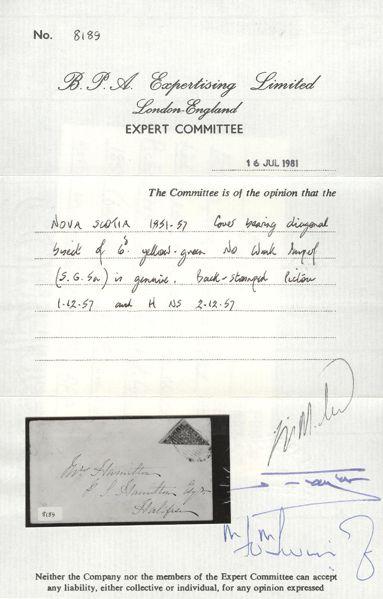 No. 8189
B. P. A. Expertising Limited
London-England
EXPERT COMMITTEE
16 JUL 1981
The Committee is of the opinion that the
NOVA SCOTIA 1851-57 Cover bearing diagonal
bisect of 6d yellow-green No Wmk Imperf
(S.G. 5a) is genuine. Back-stamped Pictou
1-12-57 and H NS 2-12-57
Mrs Hamilton
Hamilton Esqr
Halifax
8189
Neither the Company nor the members of the Expert Committee can accept
any liability, either collective or individual, for any opinion expressed